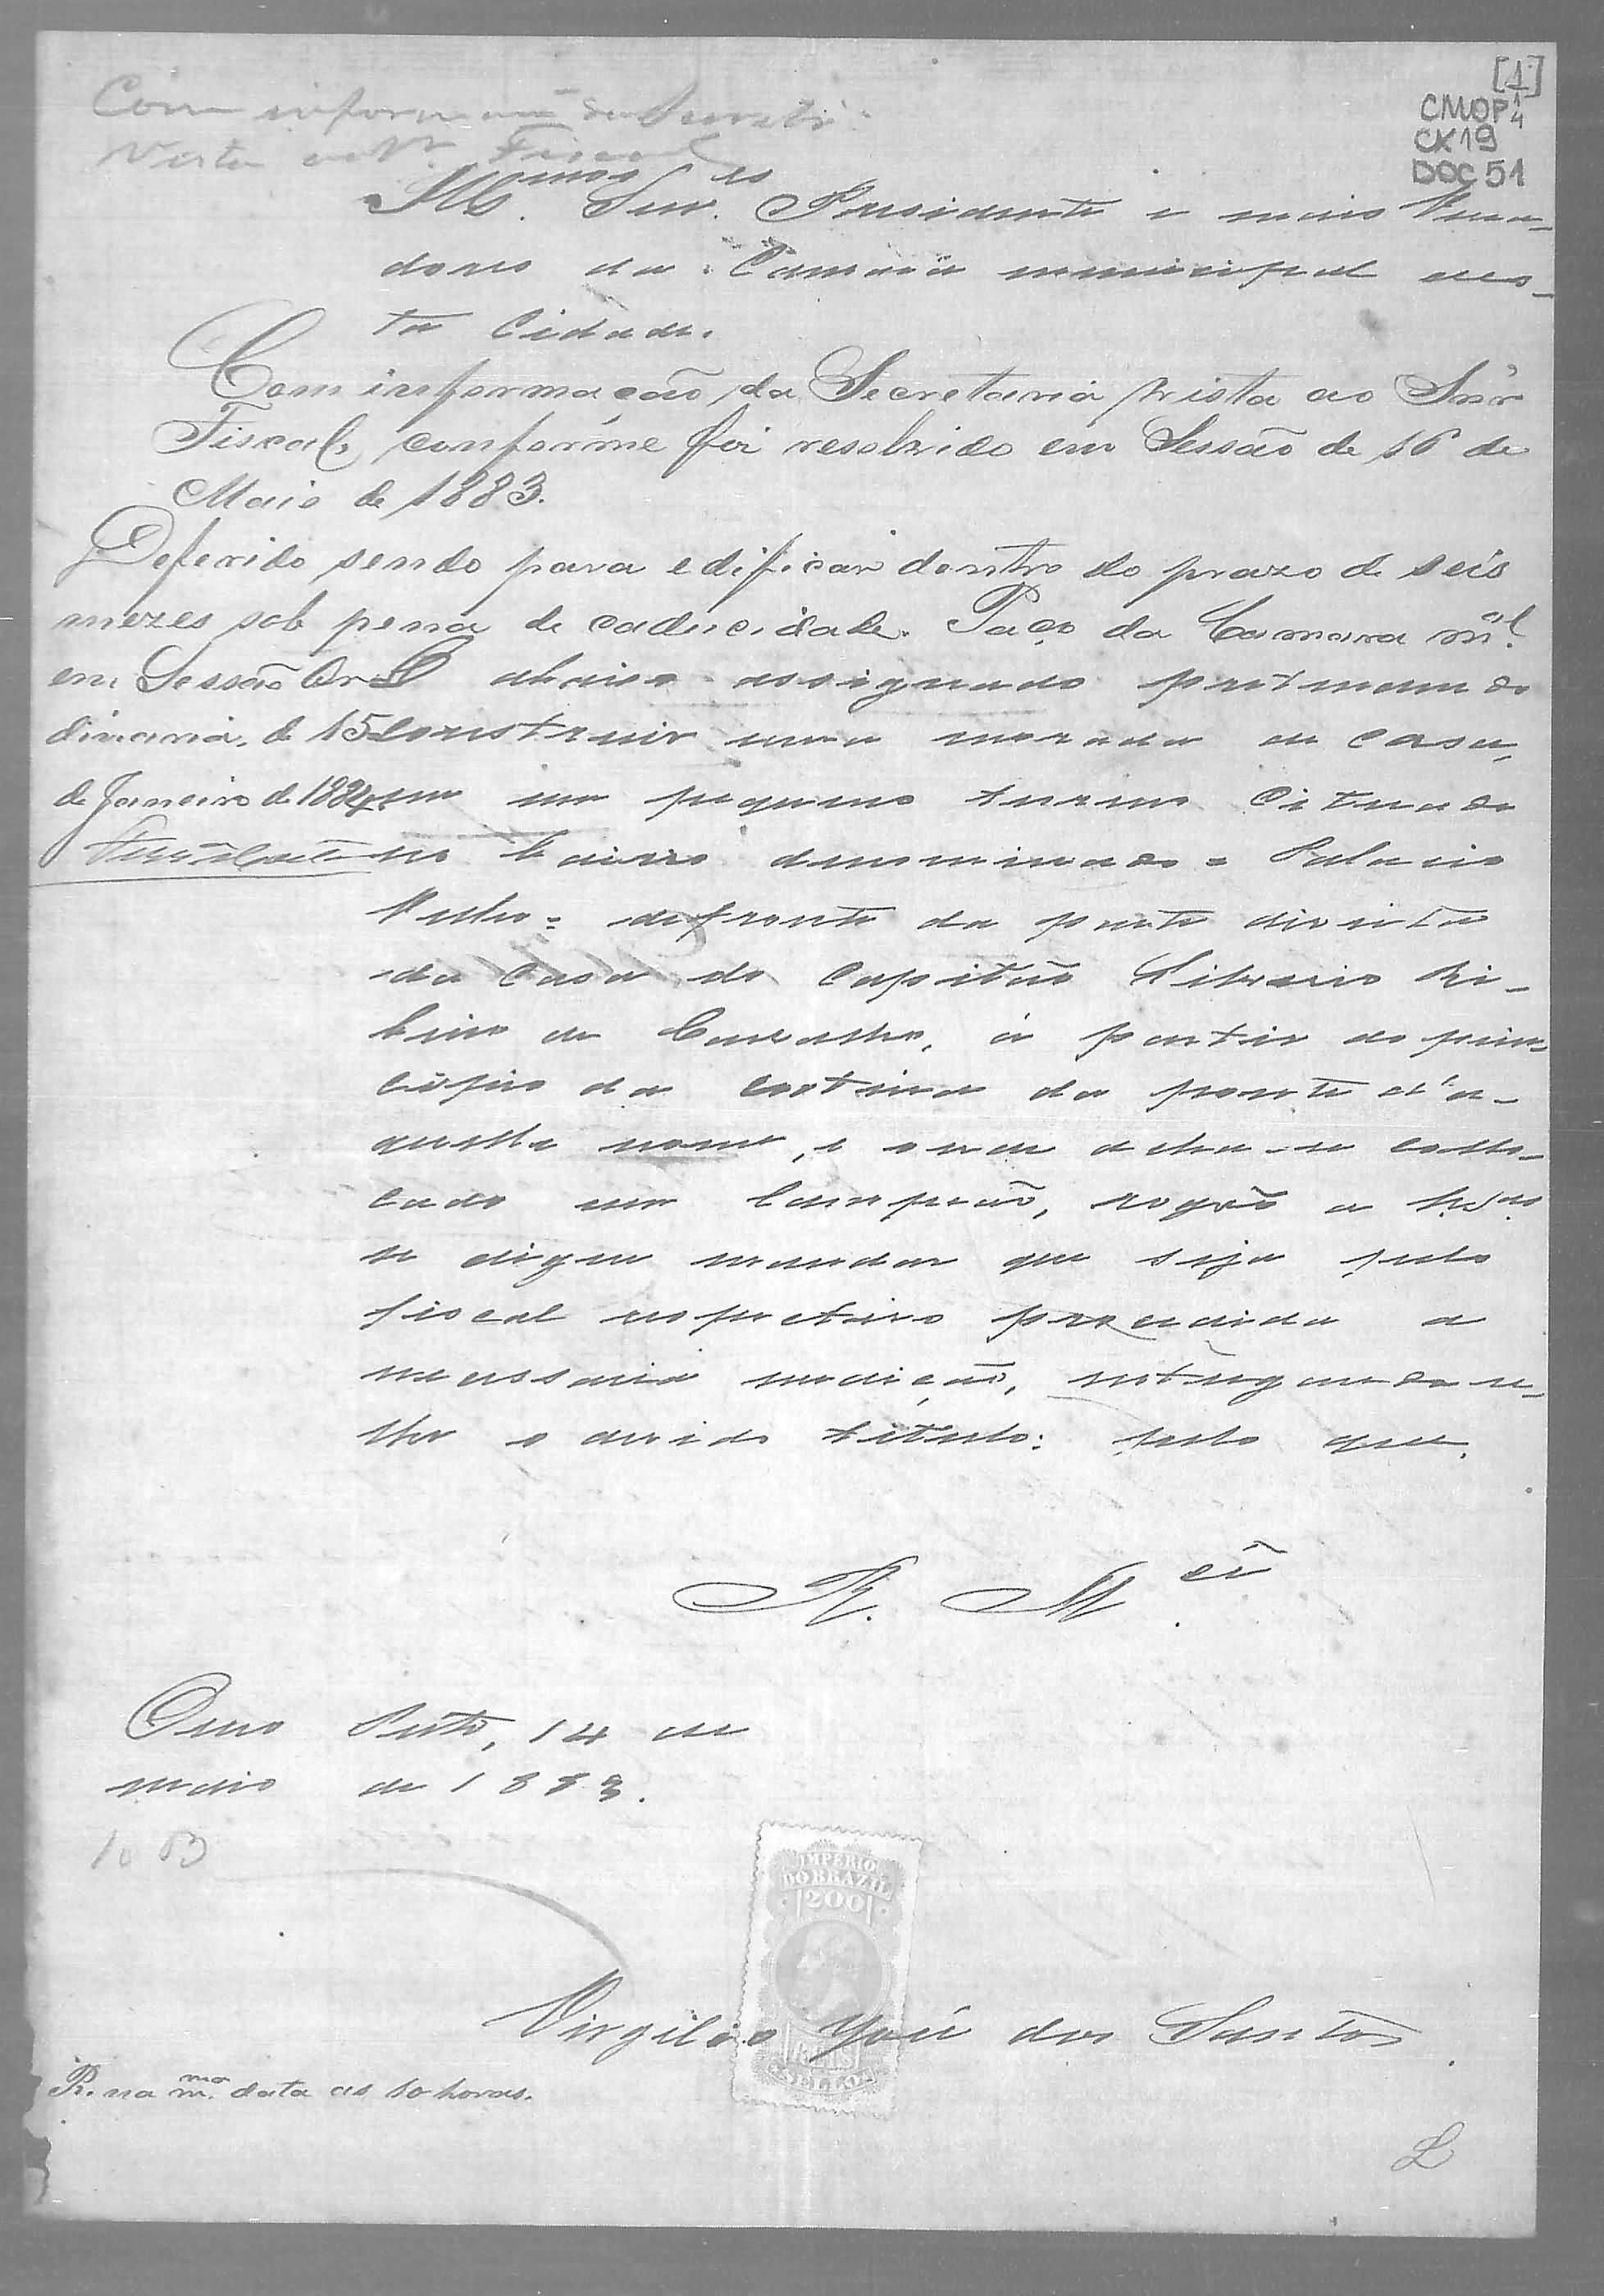 [1]
CMOP
CX19
DOC 51
Com informação da Secretª
Vista ao Sr. Fiscal
Illmos. Snrs. Presidente e mais Verea-
dores da Camara municipal des-
ta Cidade.
Com informação da Secretaria, vista ao Snr
Fiscal, conforme foi resolvido em Sessão de 16 de
Maio de 1883.
Deferido sendo para edificar dentro do prazo de seis
mezes sob pena de caducidade. Paço da Camara mal.
em Sessão Or-
dinaria, de 15
de Janeiro de 1884
O abaixo assignado pretendendo
construir uma morada de casa,
em um pequeno terreno cituado
no bairro denominado = Palacio
Velho = defronte da parte direita
da casa do Capitão Liberio Ri-
beiro de Carvalho, á partir do prin-
cipio da cortina da ponte d'a-
quelle nome, e onde acha-se collo-
cado um lampeão, roga a V.Sas.
se digne mandar que seja pelo
fiscal respectivo procedida a
necessaria medição, entregando-se-
lhe o devido titulo: pelo que.
R. M.cê
Ouro Preto, 14 de
maio de 1883.
IMPERIO
DO BRAZIL
200
REIS
SELLO
Virgilio José dos Santos.
R. na m.ma data as 10 horas.